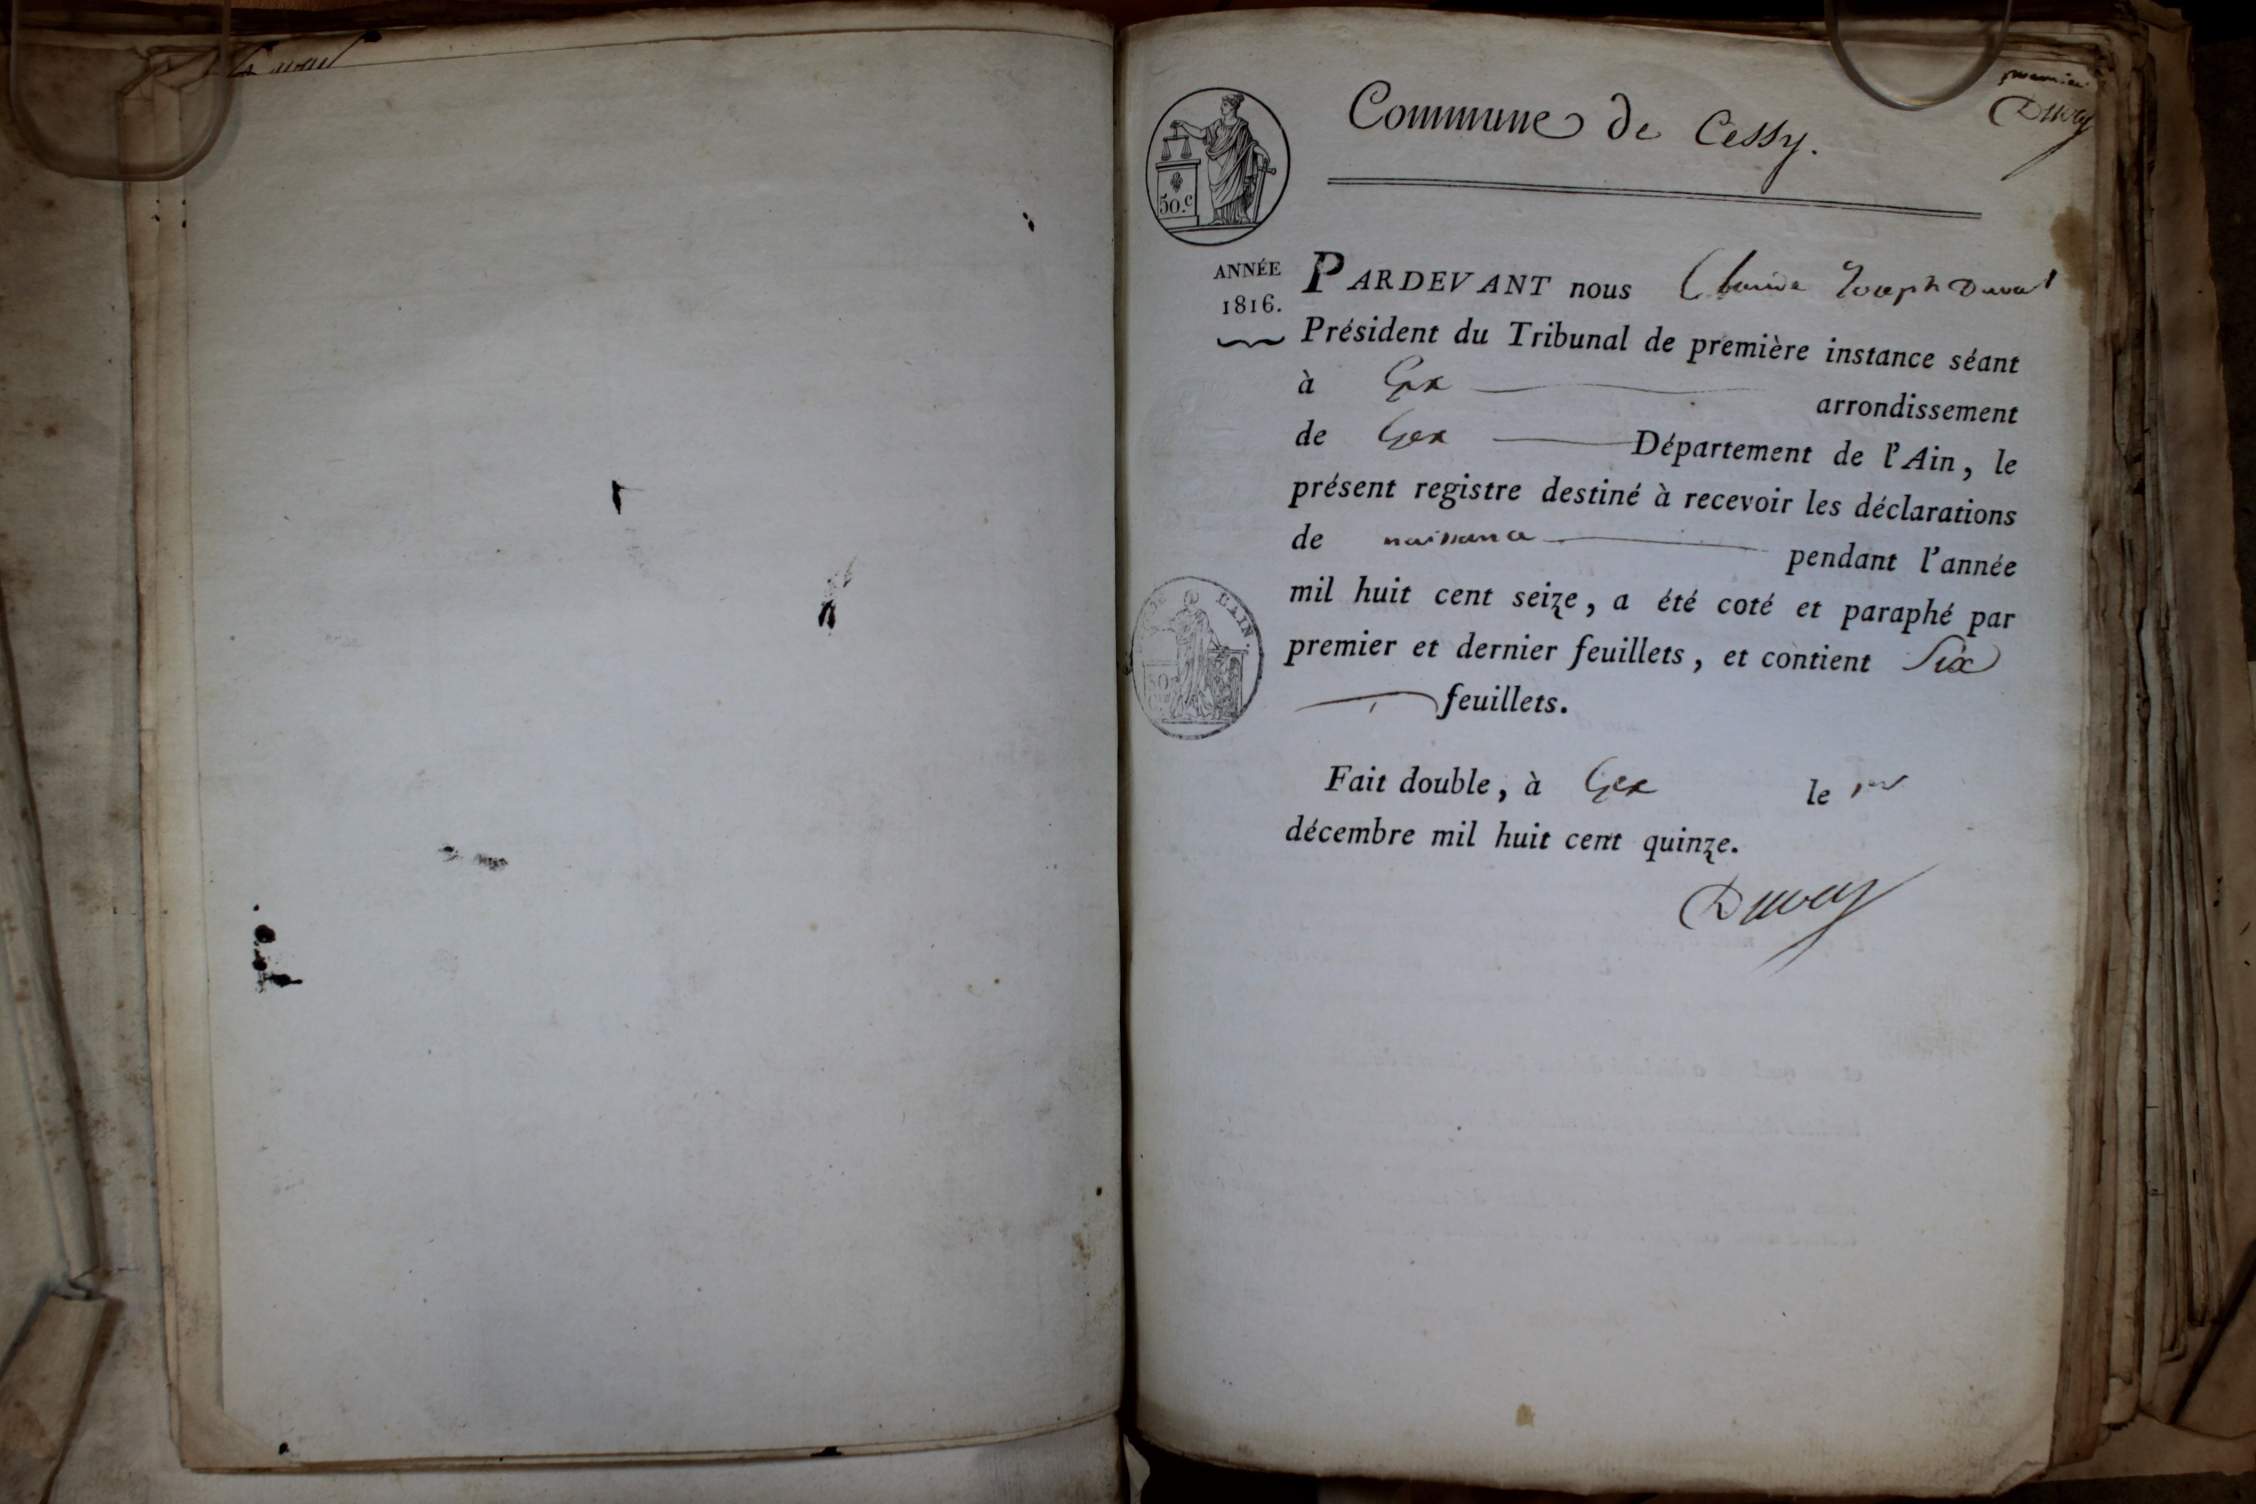 Duval
premier
Duval
Commune de Cessy.
50.c
ANNÉE
1816.
PARDEVANT nous Claude Joseph Duval
Président du Tribunal de première instance séant
à Gex arrondissement
de Gex Département de l'Ain, le
présent registre destiné à recevoir les déclarations
de naissance pendant l'année
mil huit cent seize, a été coté et paraphé par
premier et dernier feuillets, et contient Six
feuillets.
L'AIN.
50
Fait double, à Gex le 1er
décembre mil huit cent quinze.
Duval